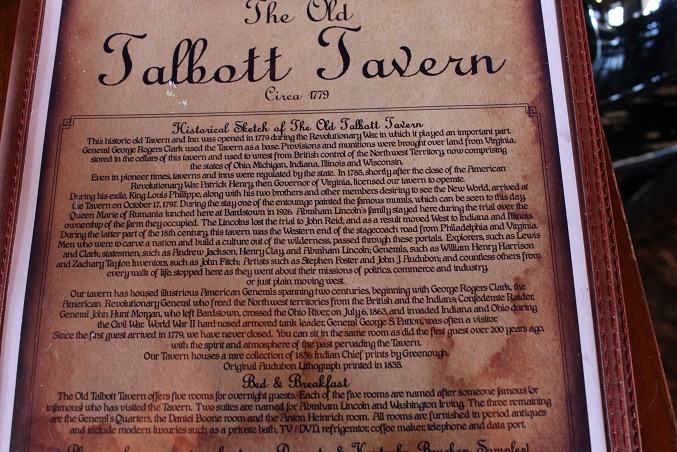 The Old
Talbott Tavern
Circa 1779
Historical Sketch of The Old Talbott Tavern
This historic old Tavern and Inn was opened in 1779 during the Revolutionary War, in which it played an important part.
General George Rogers Clark used the Tavern as a base. Provisions and munitions were brought over land from Virginia,
stored in the cellars of this tavern and used to wrest from British control of the Northwest Territory, now comprising
the states of Ohio, Michigan, Indiana, Illinois and Wisconsin.
Even in pioneer times, taverns and inns were regulated by the state. In 1785, shortly after the close of the American
Revolutionary War, Patrick Henry, then Governor of Virginia, licensed our tavern to operate.
During his exile, King Louis Phillippe, along with his two brothers and other members desiring to see the New World, arrived at
the Tavern on October 17, 1797. During the stay one of the entourage painted the famous murals, which can be seen to this day.
Queen Marie of Rumania lunched here at Bardstown in 1926. Abraham Lincoln's family stayed here during the trial over the
ownership of the farm they occupied. The Lincolns lost the trial to John Reid, and as a result moved West to Indiana and Illinois.
During the latter part of the 18th century, this tavern was the Western end of the stagecoach road from Philadelphia and Virginia.
Men who were to carve a nation and build a culture out of the wilderness, passed through these portals. Explorers, such as Lewis
and Clark; statesmen, such as Andrew Jackson, Henry Clay, and Abraham Lincoln; Generals, such as William Henry Harrison
and Zachary Taylor; Inventors, such as John Fitch; Artists such as Stephen Foster and John J. Audubon; and countless others from
every walk of life stopped here as they went about their missions of politics, commerce and industry,
or just plain moving west.
Our tavern has housed illustrious American Generals spanning two centuries, beginning with George Rogers Clark, the
American Revolutionary General who freed the Northwest territories from the British and the Indians; Confederate Raider,
General John Hunt Morgan, who left Bardstown, crossed the Ohio River on July 6, 1863, and invaded Indiana and Ohio during
the Civil War. World War II hard nosed armored tank leader, General George S. Patton, was often a visitor.
Since the first guest arrived in 1779, we have never closed. You can sit in the same room as did the first guest over 200 years ago,
with the spirit and atmosphere of the past pervading the Tavern.
Our Tavern houses a rare collection of 1836 Indian Chief prints by Greenough.
Original Audubon Lithograph printed in 1835.
Bed & Breakfast
The Old Talbott Tavern offers five rooms for overnight guests. Each of the five rooms are named after someone famous (or
infamous) who has visited the Tavern. Two suites are named for Abraham Lincoln and Washington Irving. The three remaining
are the General's Quarters, the Daniel Boone room and the Anton Heinrich room. All rooms are furnished in period antiques
and include modern luxuries such as a private bath, TV / DVD, refrigerator, coffee maker, telephone and data port.
Kentucky Bourbon Sampler!